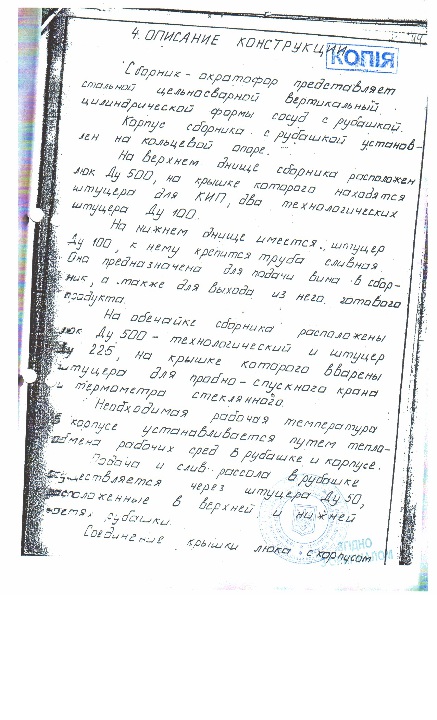 4. ОПИСАНИЕ КОНСТРУКЦИИ
КОПІЯ
Сборник - акратофор представляет
стальной цельносварной вертикальный
цилиндрической формы сосуд с рубашкой.
Корпус сборника с рубашкой установ-
лен на кольцевой опоре.
На верхнем днище сборника расположен
люк Ду 500, на крышке которого находятся
штуцера для КИП, два технологических
штуцера Ду 100.
На нижнем днище имеется штуцер
Ду 100, к нему крепится труба сливная.
Она предназначена для подачи вина в сбор-
ник, а также для выхода из него готового
продукта.
На обечайке сборника расположены
люк Ду 500 - технологический и штуцер
Ду 225, на крышке которого вварены
штуцера для пробно-спускного крана
и термометра стеклянного.
Необходимая рабочая температура
в корпусе устанавливается путем тепло-
обмена рабочих сред в рубашке и корпусе.
Подача и слив рассола в рубашке
осуществляется через штуцера Ду 50,
расположенные в верхней и нижней
частях рубашки.
Соединение крышки люка с корпусом